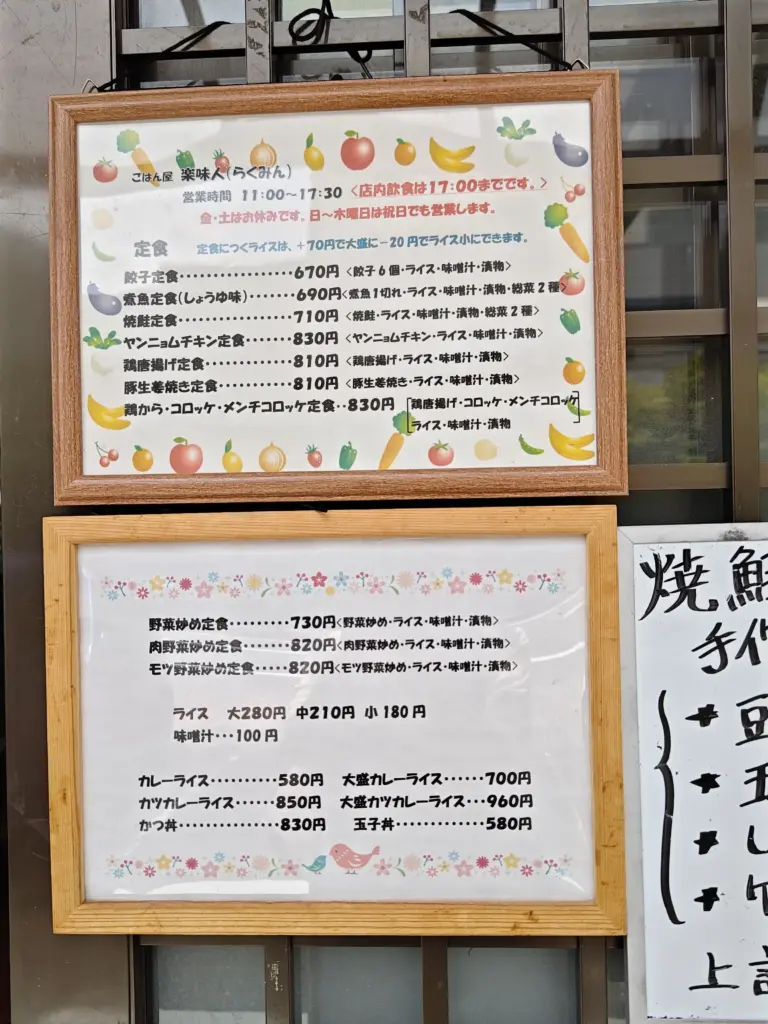 ごはん屋 楽味人(らくみん)
営業時間 11:00～17:30 <店内飲食は17:00までです。>
金・土はお休みです。日～木曜日は祝日でも営業します。
定食 定食につくライスは、+70円で大盛に-20円でライス小にできます。
餃子定食・・・・・・・・・・・・・・・・・670円 <餃子6個・ライス・味噌汁・漬物>
煮魚定食(しょうゆ味)・・・・・・・690円<煮魚1切れ・ライス・味噌汁・漬物・総菜2種>
焼鮭定食・・・・・・・・・・・・・・・・・710円 <焼鮭・ライス・味噌汁・漬物・総菜2種>
ヤンニョムチキン定食・・・・・・830円 <ヤンニョムチキン・ライス・味噌汁・漬物>
鶏唐揚げ定食・・・・・・・・・・・・・810円 <鶏唐揚げ・ライス・味噌汁・漬物>
豚生姜焼き定食・・・・・・・・・・・810円 <豚生姜焼き・ライス・味噌汁・漬物>
鶏から・コロッケ・メンチコロッケ定食・・830円 [鶏唐揚げ・コロッケ・メンチコロッケ
ライス・味噌汁・漬物]
野菜炒め定食・・・・・・・・・730円<野菜炒め・ライス・味噌汁・漬物>
肉野菜炒め定食・・・・・・820円<肉野菜炒め・ライス・味噌汁・漬物>
モツ野菜炒め定食・・・・・820円<モツ野菜炒め・ライス・味噌汁・漬物>
ライス 大280円 中210円 小180円
味噌汁・・・100円
カレーライス・・・・・・・・・・580円 大盛カレーライス・・・・・・700円
カツカレーライス・・・・・・850円 大盛カツカレーライス・・・960円
かつ丼・・・・・・・・・・・・・・・830円 玉子丼・・・・・・・・・・・・・580円
焼
手作
★
★
★ し
★
上記